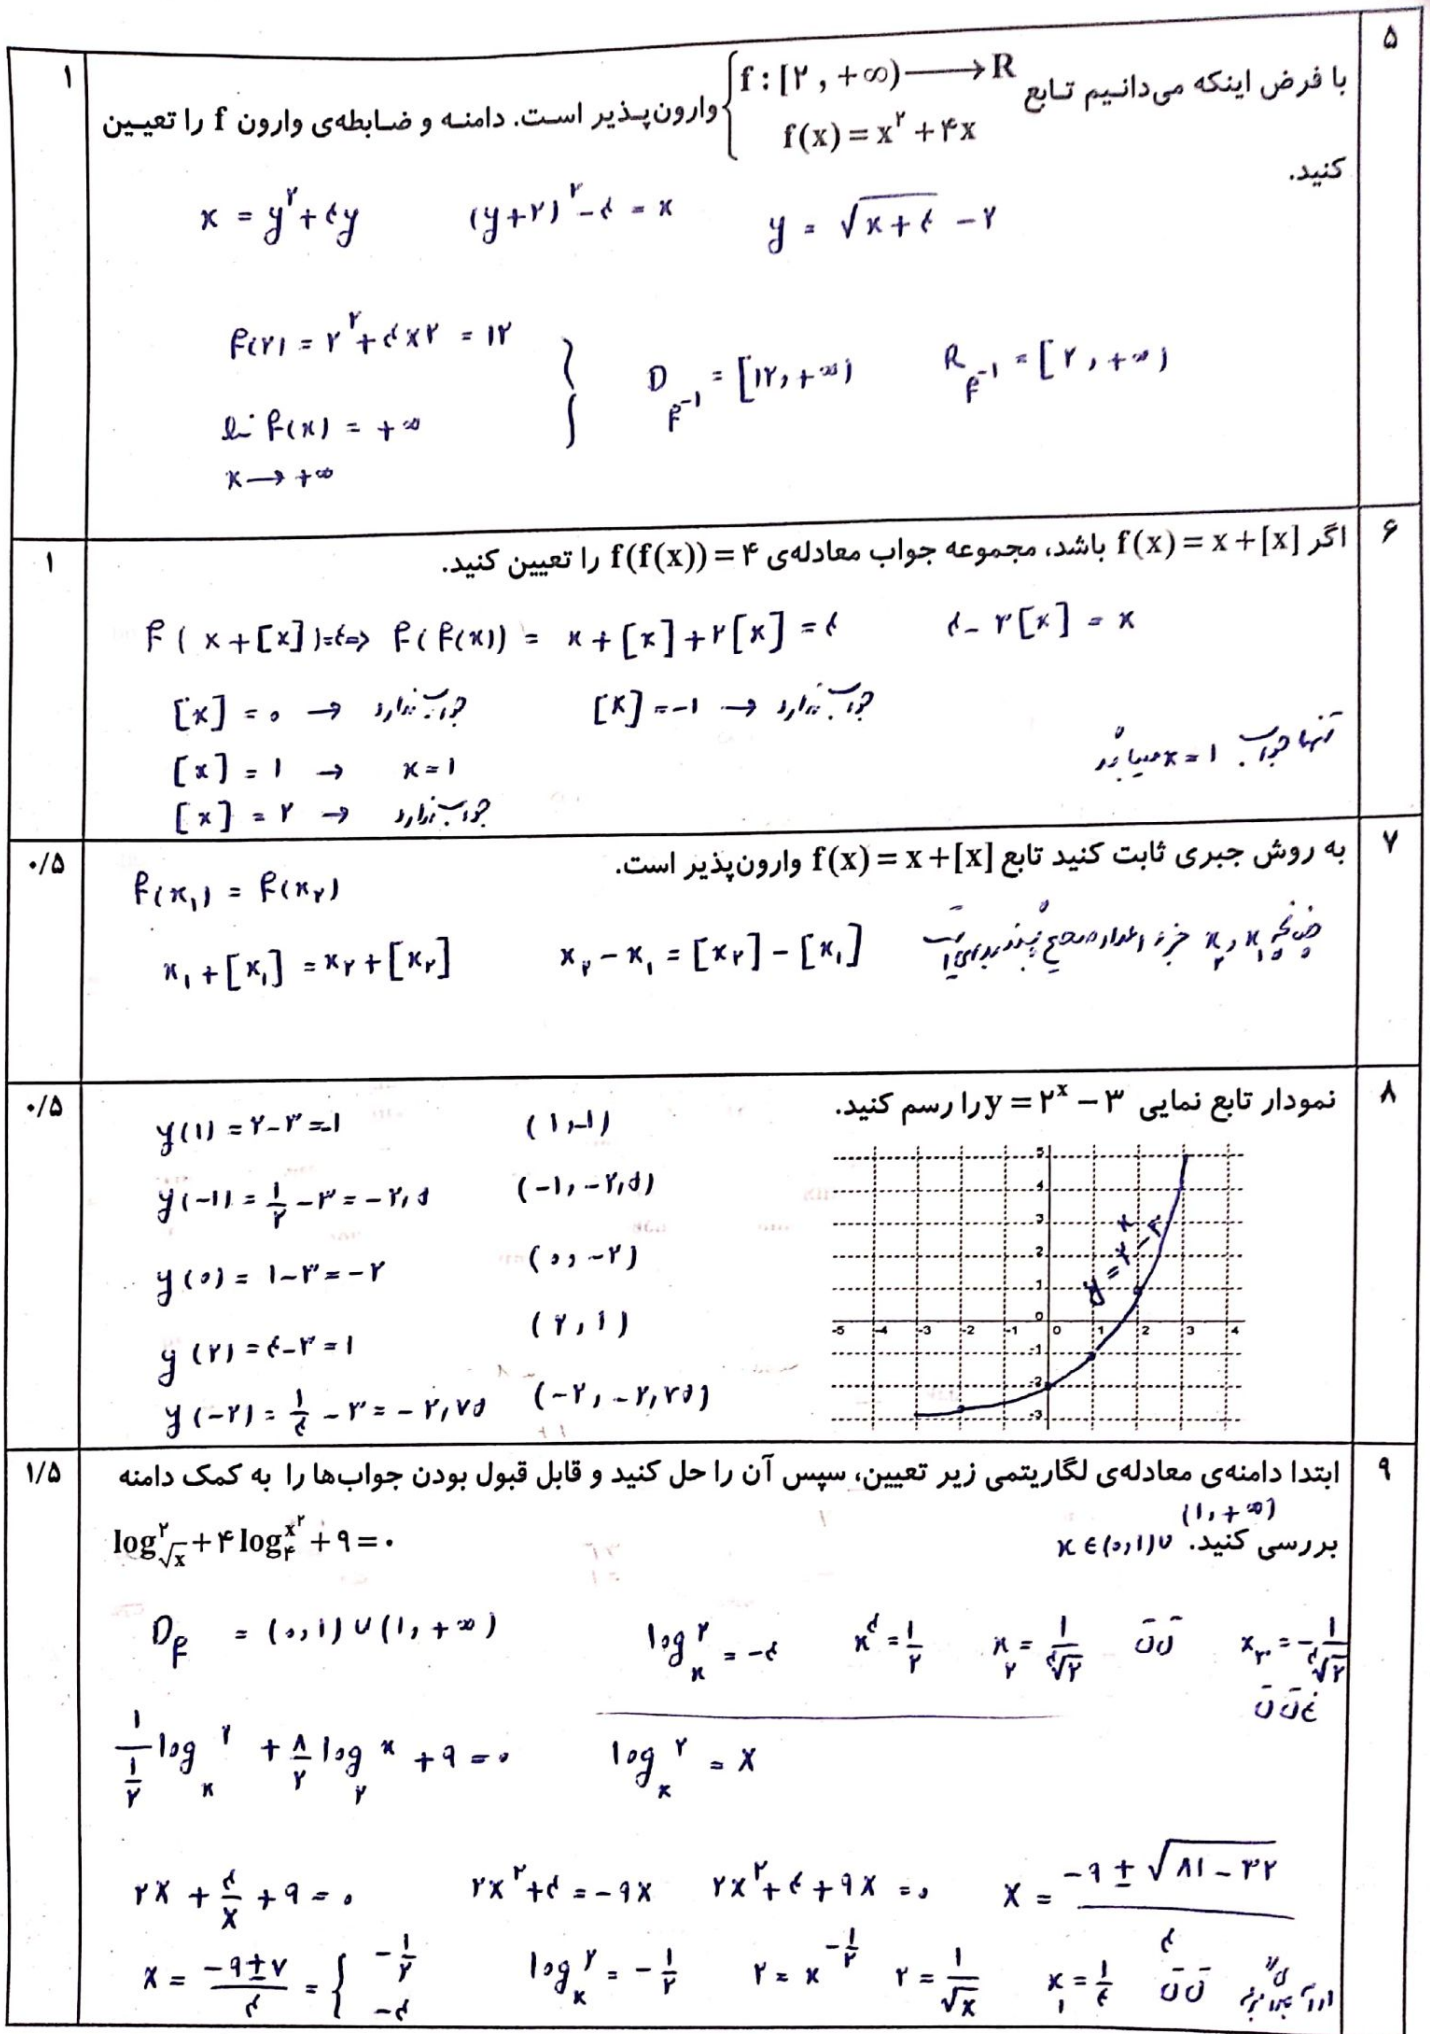 ۵
با فرض اینکه می‌دانیم تابع { f : [۲ , +∞) ⟶ R
f(x) = x^۲ + ۴x وارون‌پذیر است. دامنه و ضابطه‌ی وارون f را تعیین ۱
کنید.
x = y^۲ + ۴y (y+۲)^۲ - ۴ = x y = √(x+۴) - ۲
f(۲) = ۲^۲ + ۴×۲ = ۱۲
D_f^-۱ = [۱۲, +∞) R_f^-۱ = [۲, +∞)
lim f(x) = +∞
x → +∞
۶ اگر f(x) = x + [x] باشد، مجموعه جواب معادله‌ی f(f(x)) = ۴ را تعیین کنید. ۱
f(x+[x])=۴ ⇔ f(f(x)) = x+[x]+۲[x] = ۴ ۴-۳[x] = x
[x] = ۰ → جواب ندارد [x] = -۱ → جواب ندارد
[x] = ۱ → x = ۱ تنها جواب x = ۱ میباشد
[x] = ۲ → جواب ندارد
۷ به روش جبری ثابت کنید تابع f(x) = x + [x] وارون‌پذیر است. ۰/۵
f(x_۱) = f(x_۲)
x_۱ + [x_۱] = x_۲ + [x_۲] x_۲ - x_۱ = [x_۲] - [x_۱] چنانچه x_۱ و x_۲ جزء اعداد صحیح
۸ نمودار تابع نمایی y = ۲^x - ۳ را رسم کنید. ۰/۵
y(۱) = ۲-۳ = -۱ (۱,-۱)
y(-۱) = ۱/۲ - ۳ = -۲,۵ (-۱, -۲,۵)
y(۰) = ۱-۳ = -۲ (۰, -۲)
y(۲) = ۴-۳ = ۱ (۲, ۱)
y(-۲) = ۱/۴ - ۳ = -۲,۷۵ (-۲, -۲,۷۵)
y = ۲^x - ۳
5
4
3
2
1
0
-5 -4 -3 -2 -1 0 1 2 3 4
-1
-2
-3
۹ ابتدا دامنه‌ی معادله‌ی لگاریتمی زیر تعیین، سپس آن را حل کنید و قابل قبول بودن جواب‌ها را به کمک دامنه ۱/۵
بررسی کنید. x ∈ (۰,۱) ∪ (۱, +∞) log_√x^۲ + ۴ log_۴^x^۲ + ۹ = ۰
D_f = (۰,۱) ∪ (۱, +∞) log_x^۲ = -۴ x^۴ = ۱/۲ x_۲ = ۱/⁴√۲ ق ق x_۳ = -۱/⁴√۲
غ ق ق
۱/(۱/۲) log_x^۲ + ۸/۲ log_۲^x + ۹ = ۰ log_x^۲ = X
۲X + ۴/X + ۹ = ۰ ۲X^۲ + ۴ = -۹X ۲X^۲ + ۴ + ۹X = ۰ X = (-۹ ± √(۸۱ - ۳۲))/۴
X = (-۹ ± ۷)/۴ = { -۱/۲
-۴ log_x^۲ = -۱/۲ ۲ = x^(-۱/۲) ۲ = ۱/√x x_۱ = ۱/۴ ق ق